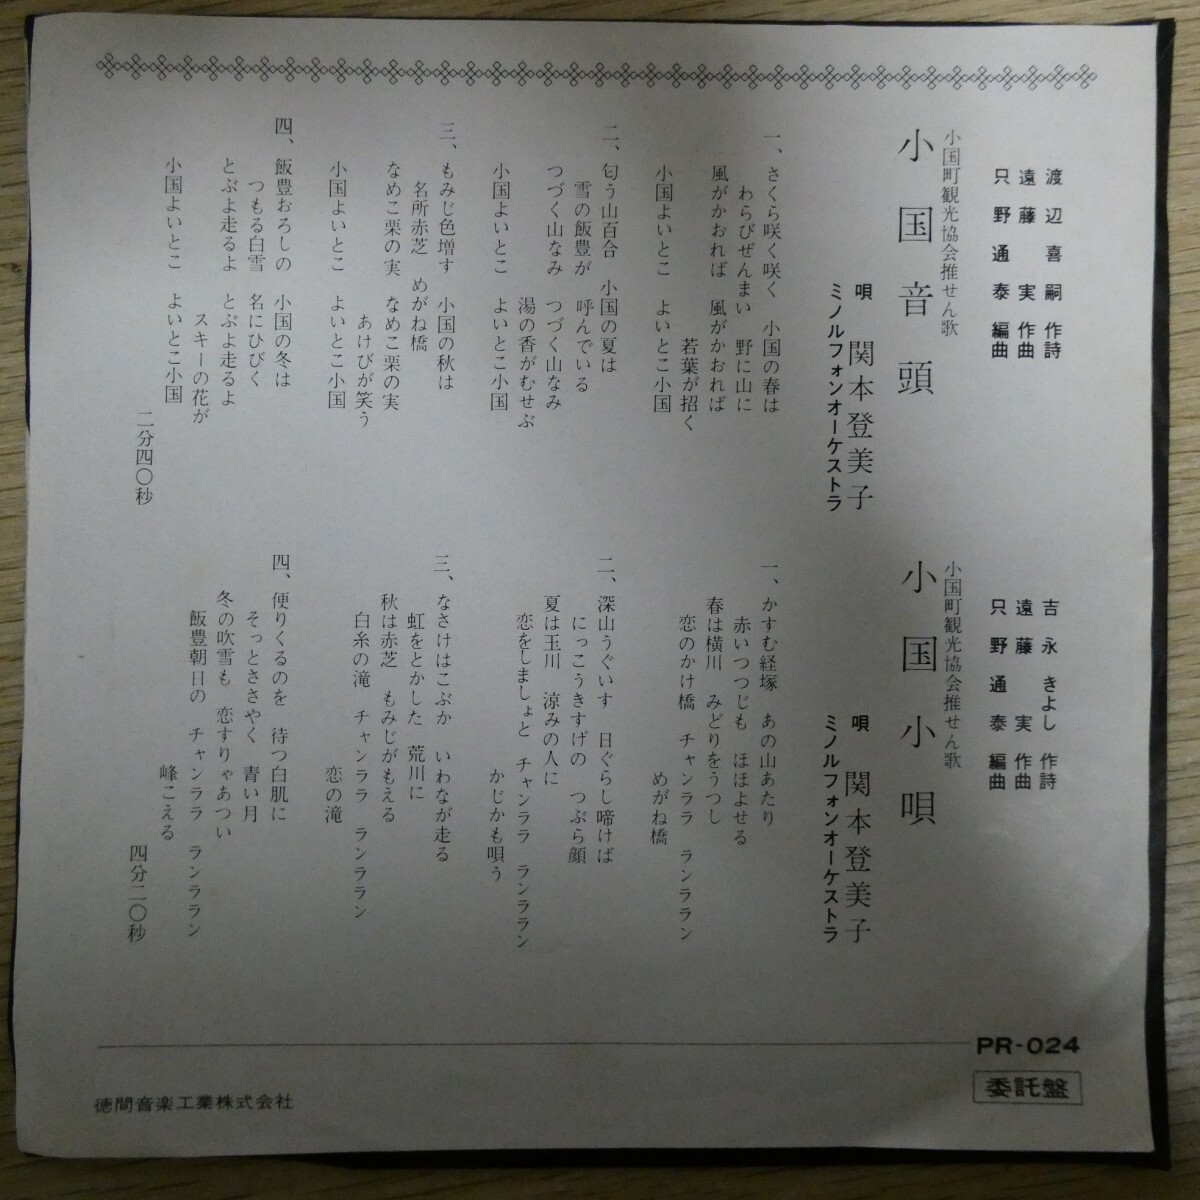 渡辺喜嗣 作詩
遠藤 実 作曲
只野通泰 編曲
小国町観光協会推せん歌
小国音頭
唄 関本登美子
ミノルフォンオーケストラ
一、さくら咲く咲く 小国の春は
わらびぜんまい 野に山に
風がかおれば 風がかおれば
若葉が招く
小国よいとこ よいとこ小国
二、匂う山百合 小国の夏は
雪の飯豊が 呼んでいる
つづく山なみ つづく山なみ
湯の香がむせぶ
小国よいとこ よいとこ小国
三、もみじ色増す 小国の秋は
名所赤芝 めがね橋
なめこ栗の実 なめこ栗の実
あけびが笑う
小国よいとこ よいとこ小国
四、飯豊おろしの 小国の冬は
つもる白雪 名にひびく
とぶよ走るよ とぶよ走るよ
スキーの花が
小国よいとこ よいとこ小国
二分四〇秒
吉永きよし 作詩
遠藤 実 作曲
只野通泰 編曲
小国町観光協会推せん歌
小国小唄
唄 関本登美子
ミノルフォンオーケストラ
一、かすむ経塚 あの山あたり
赤いつつじも ほほよせる
春は横川 みどりをうつし
恋のかけ橋 チャンララ ランララン
めがね橋
二、深山うぐいす 日ぐらし啼けば
にっこうきすげの つぶら顔
夏は玉川 涼みの人に
恋をしましょと チャンララ ランララン
かじかも唄う
三、なさけはこぶか いわなが走る
虹をとかした 荒川に
秋は赤芝 もみじがもえる
白糸の滝 チャンララ ランララン
恋の滝
四、便りくるのを 待つ白肌に
そっとささやく 青い月
冬の吹雪も 恋すりゃあつい
飯豊朝日の チャンララ ランララン
峰こえる
四分二〇秒
PR-024
委託盤
徳間音楽工業株式会社